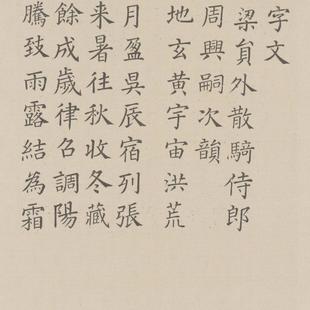 字文
梁貟外散騎侍郎
周興嗣次韻
地玄黃宇宙洪荒
月盈昃辰宿列張
来暑往秋收冬藏
餘成歲律召調陽
騰致雨露結為霜